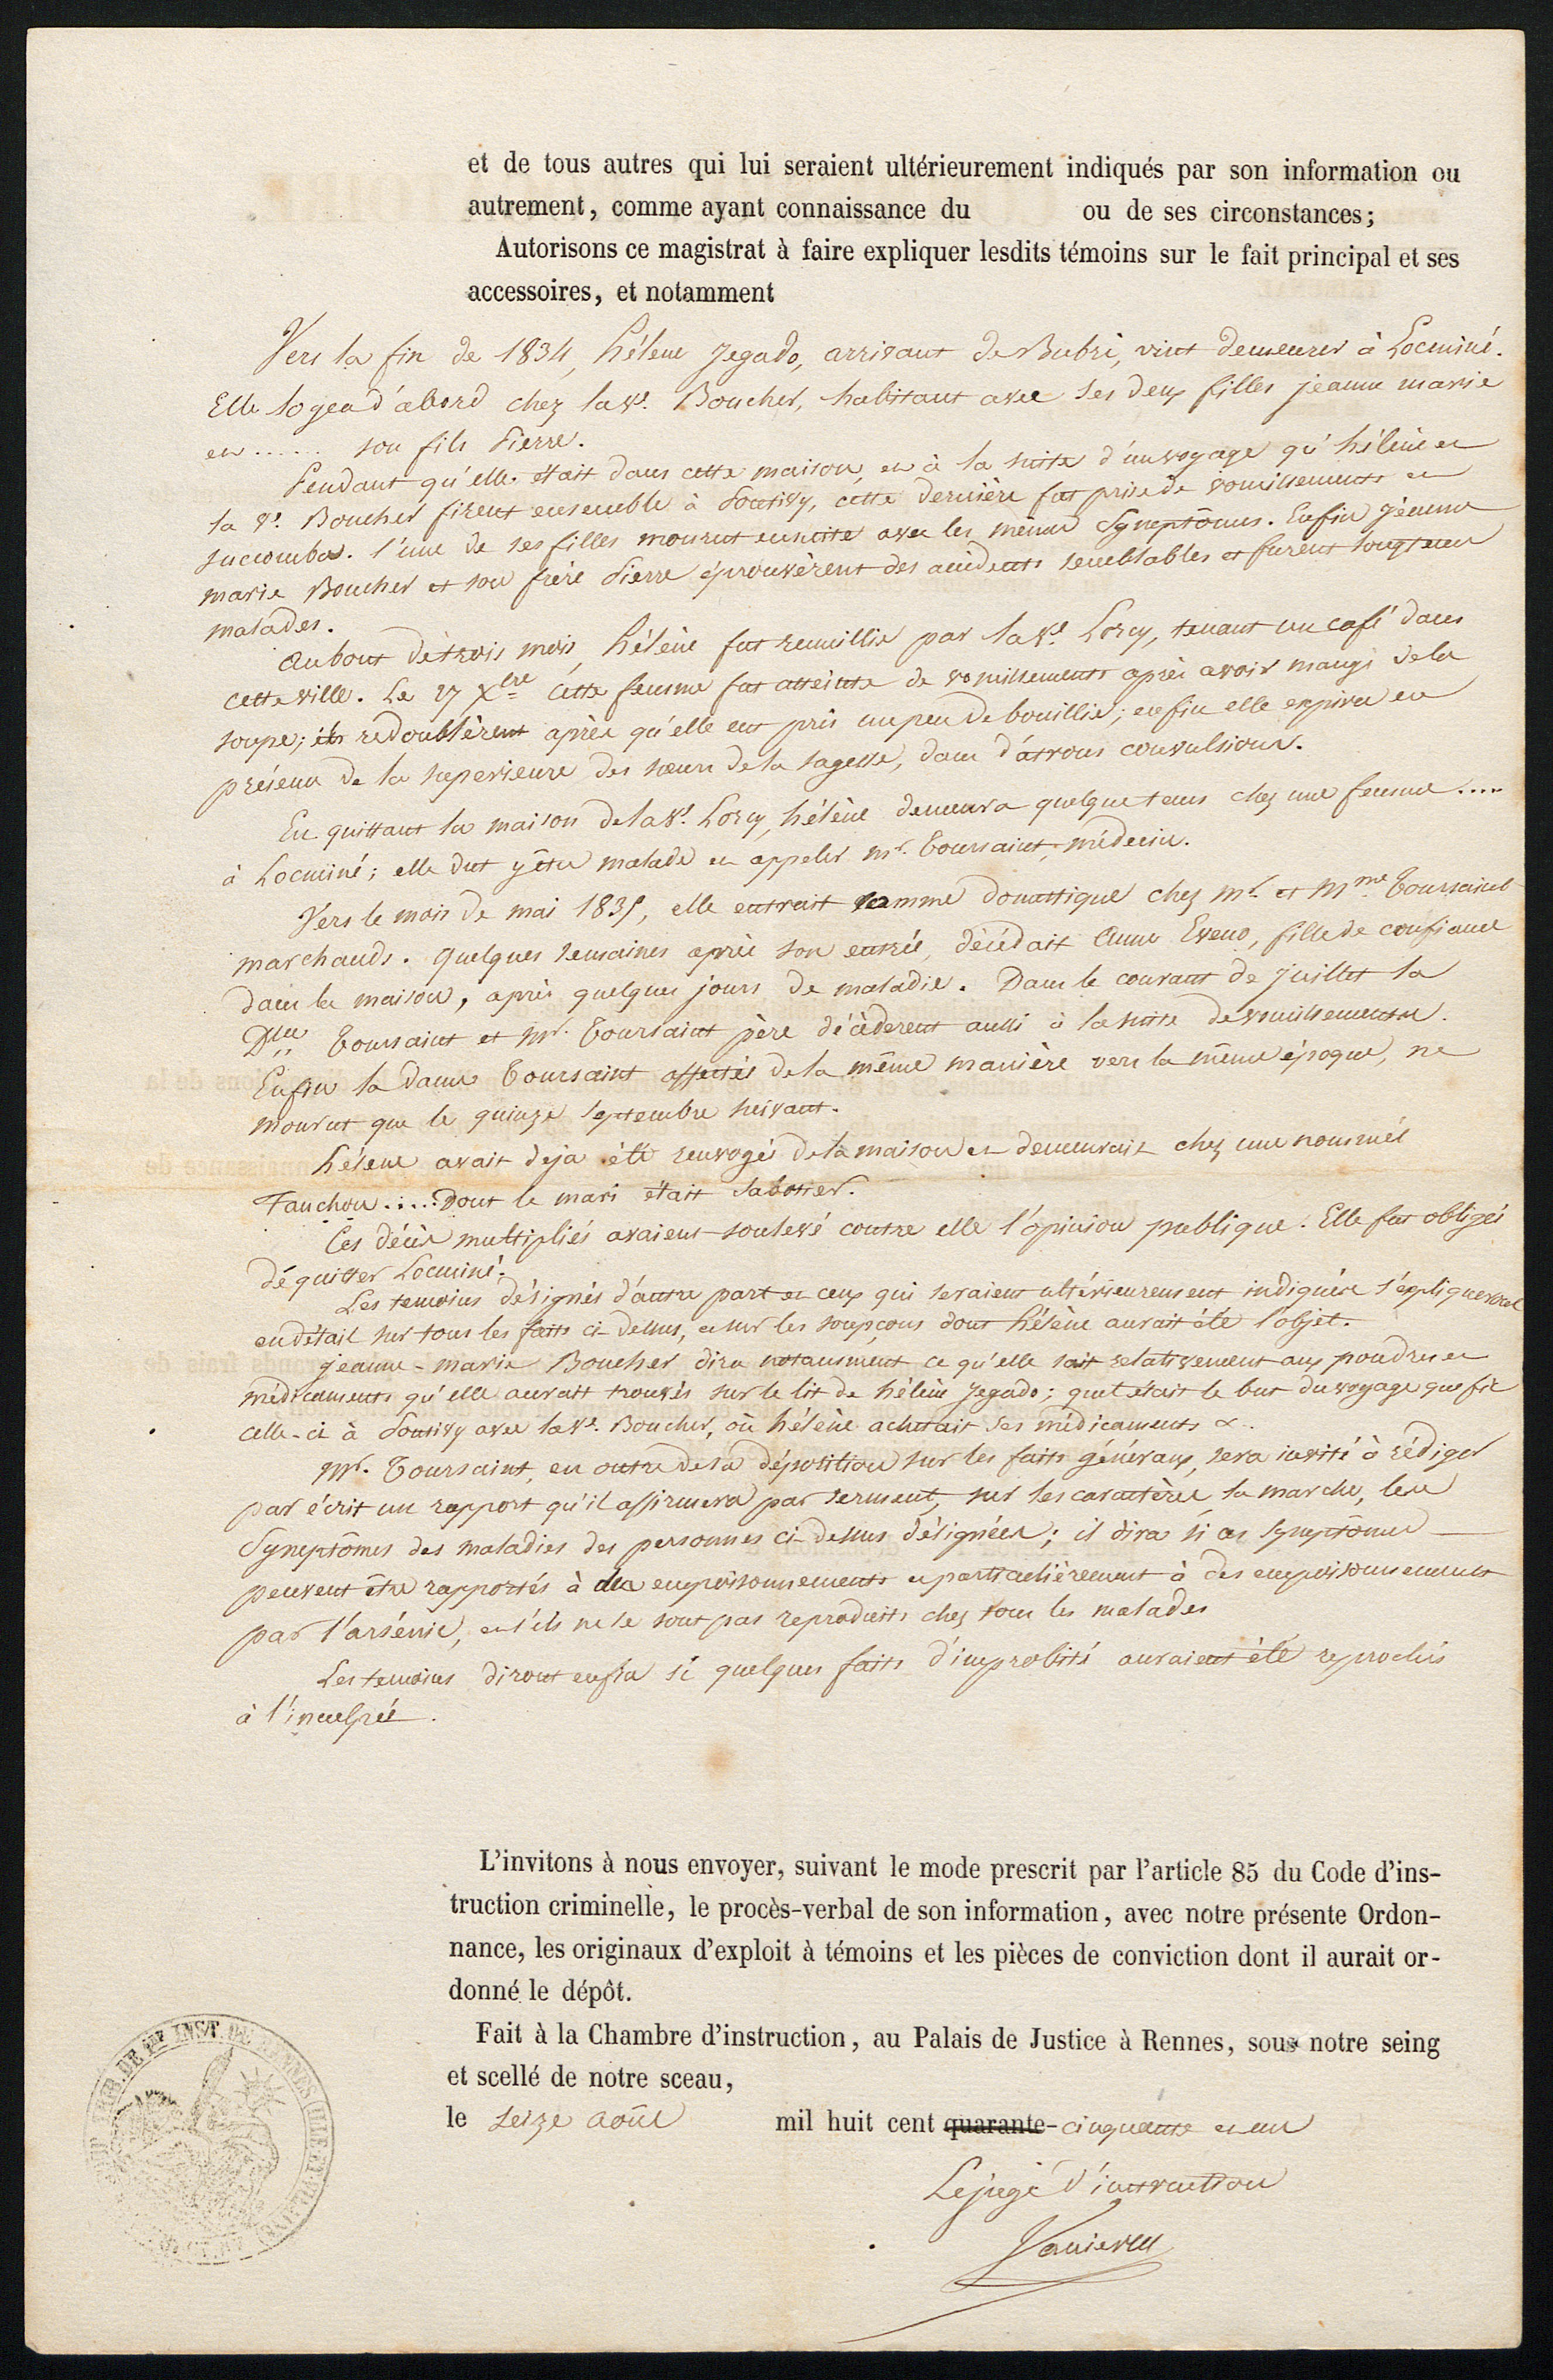 et de tous autres qui lui seraient ultérieurement indiqués par son information ou
autrement, comme ayant connaissance du ou de ses circonstances;
Autorisons ce magistrat à faire expliquer lesdits témoins sur le fait principal et ses
accessoires, et notamment
Vers la fin de 1834, hélène Jegado, arrivant de Bubri, vint demeurer à Locminé.
Elle logea d'abord chez la Ve. Boucher, habitant avec ses deux filles jeanne marie
et ...... son fils Pierre.
Pendant qu'elle était dans cette maison, et à la suite d'un voyage qu'hélène et
la Ve. Boucher firent ensemble à Pontivy, cette dernière fut prise de vomissements et
succomba. l'une de ses filles mourut ensuite avec les mêmes Symptômes. Enfin jeanne
marie Boucher et son frère Pierre éprouvèrent des accidents semblables et furent longtems
malades.
Au bout de trois mois, hélène fut recueillie par la Ve. Lorcy, tenant un café dans
cette ville. Le 27 Xbre cette femme fut atteinte de vomissements après avoir mangé de la
soupe; ils redoublèrent après qu'elle eut pris un peu de bouillie; enfin elle expira en
présence de la superieure des soeurs de la sagesse, dans d'atroces convulsions.
En quittant la maison de la Ve. Lorcy, hélène demeura quelque tems chez une femme ....
à Locminé; elle dut y être malade et appeler mr. Toursaint, médecin.
Vers le mois de mai 1835, elle entrait comme domestique chez mr. et Mme Toursaint
marchands. quelques semaines après son entrée, décédait Anne Eveno, fille de confiance
dans la maison, après quelques jours de maladie. Dans le courant de juillet la
Dlle Toursaint et mr. Toursaint père décèderent aussi à la suite de vomissements.
Enfin la dame Toursaint affectée de la même manière vers la même époque, ne
mourut que le quinze septembre suivant.
hélène avait déja été renvoyée de la maison et demeurait chez une nommée
Fanchon ..... dont le mari était sabotier.
Ces décès multipliés avaient soulevé contre elle l'opinion publique. Elle fut obligée
de quitter Locminé.
Les temoins désignés d'autre part et ceux qui seraient ultérieurement indiqués s'expliqueront
en détail sur tous les faits ci-dessus, et sur les soupçons dont hélène aurait été l'objet.
jeanne-marie Boucher dira notamment ce qu'elle sait relativement aux poudres et
médicaments qu'elle aurait trouvés sur le lit de hélène Jegado; quel était le but du voyage que fit
celle-ci à Pontivy avec la Ve. Boucher, où hélène achetait ses médicaments &.
mr. Toursaint, en outre de sa déposition sur les faits généraux, sera invité à rédiger
par écrit un rapport qu'il affirmera par serment, sur les caractères, la marche, les
Symptômes des maladies des personnes ci-dessus désignées; il dira si ces symptômes
peuvent être rapportés à des empoisonnements et particulièrement à des empoisonnements
par l'arsénic, et s'ils ne se sont pas reproduits chez tous les malades
Les temoins diront enfin si quelques faits d'improbité auraient été reprochés
à l'inculpée.
L'invitons à nous envoyer, suivant le mode prescrit par l'article 85 du Code d'ins-
truction criminelle, le procès-verbal de son information, avec notre présente Ordon-
nance, les originaux d'exploit à témoins et les pièces de conviction dont il aurait or-
donné le dépôt.
Fait à la Chambre d'instruction, au Palais de Justice à Rennes, sous notre seing
et scellé de notre sceau,
le seize août mil huit cent quarante-cinquante et un
Le juge d'instruction